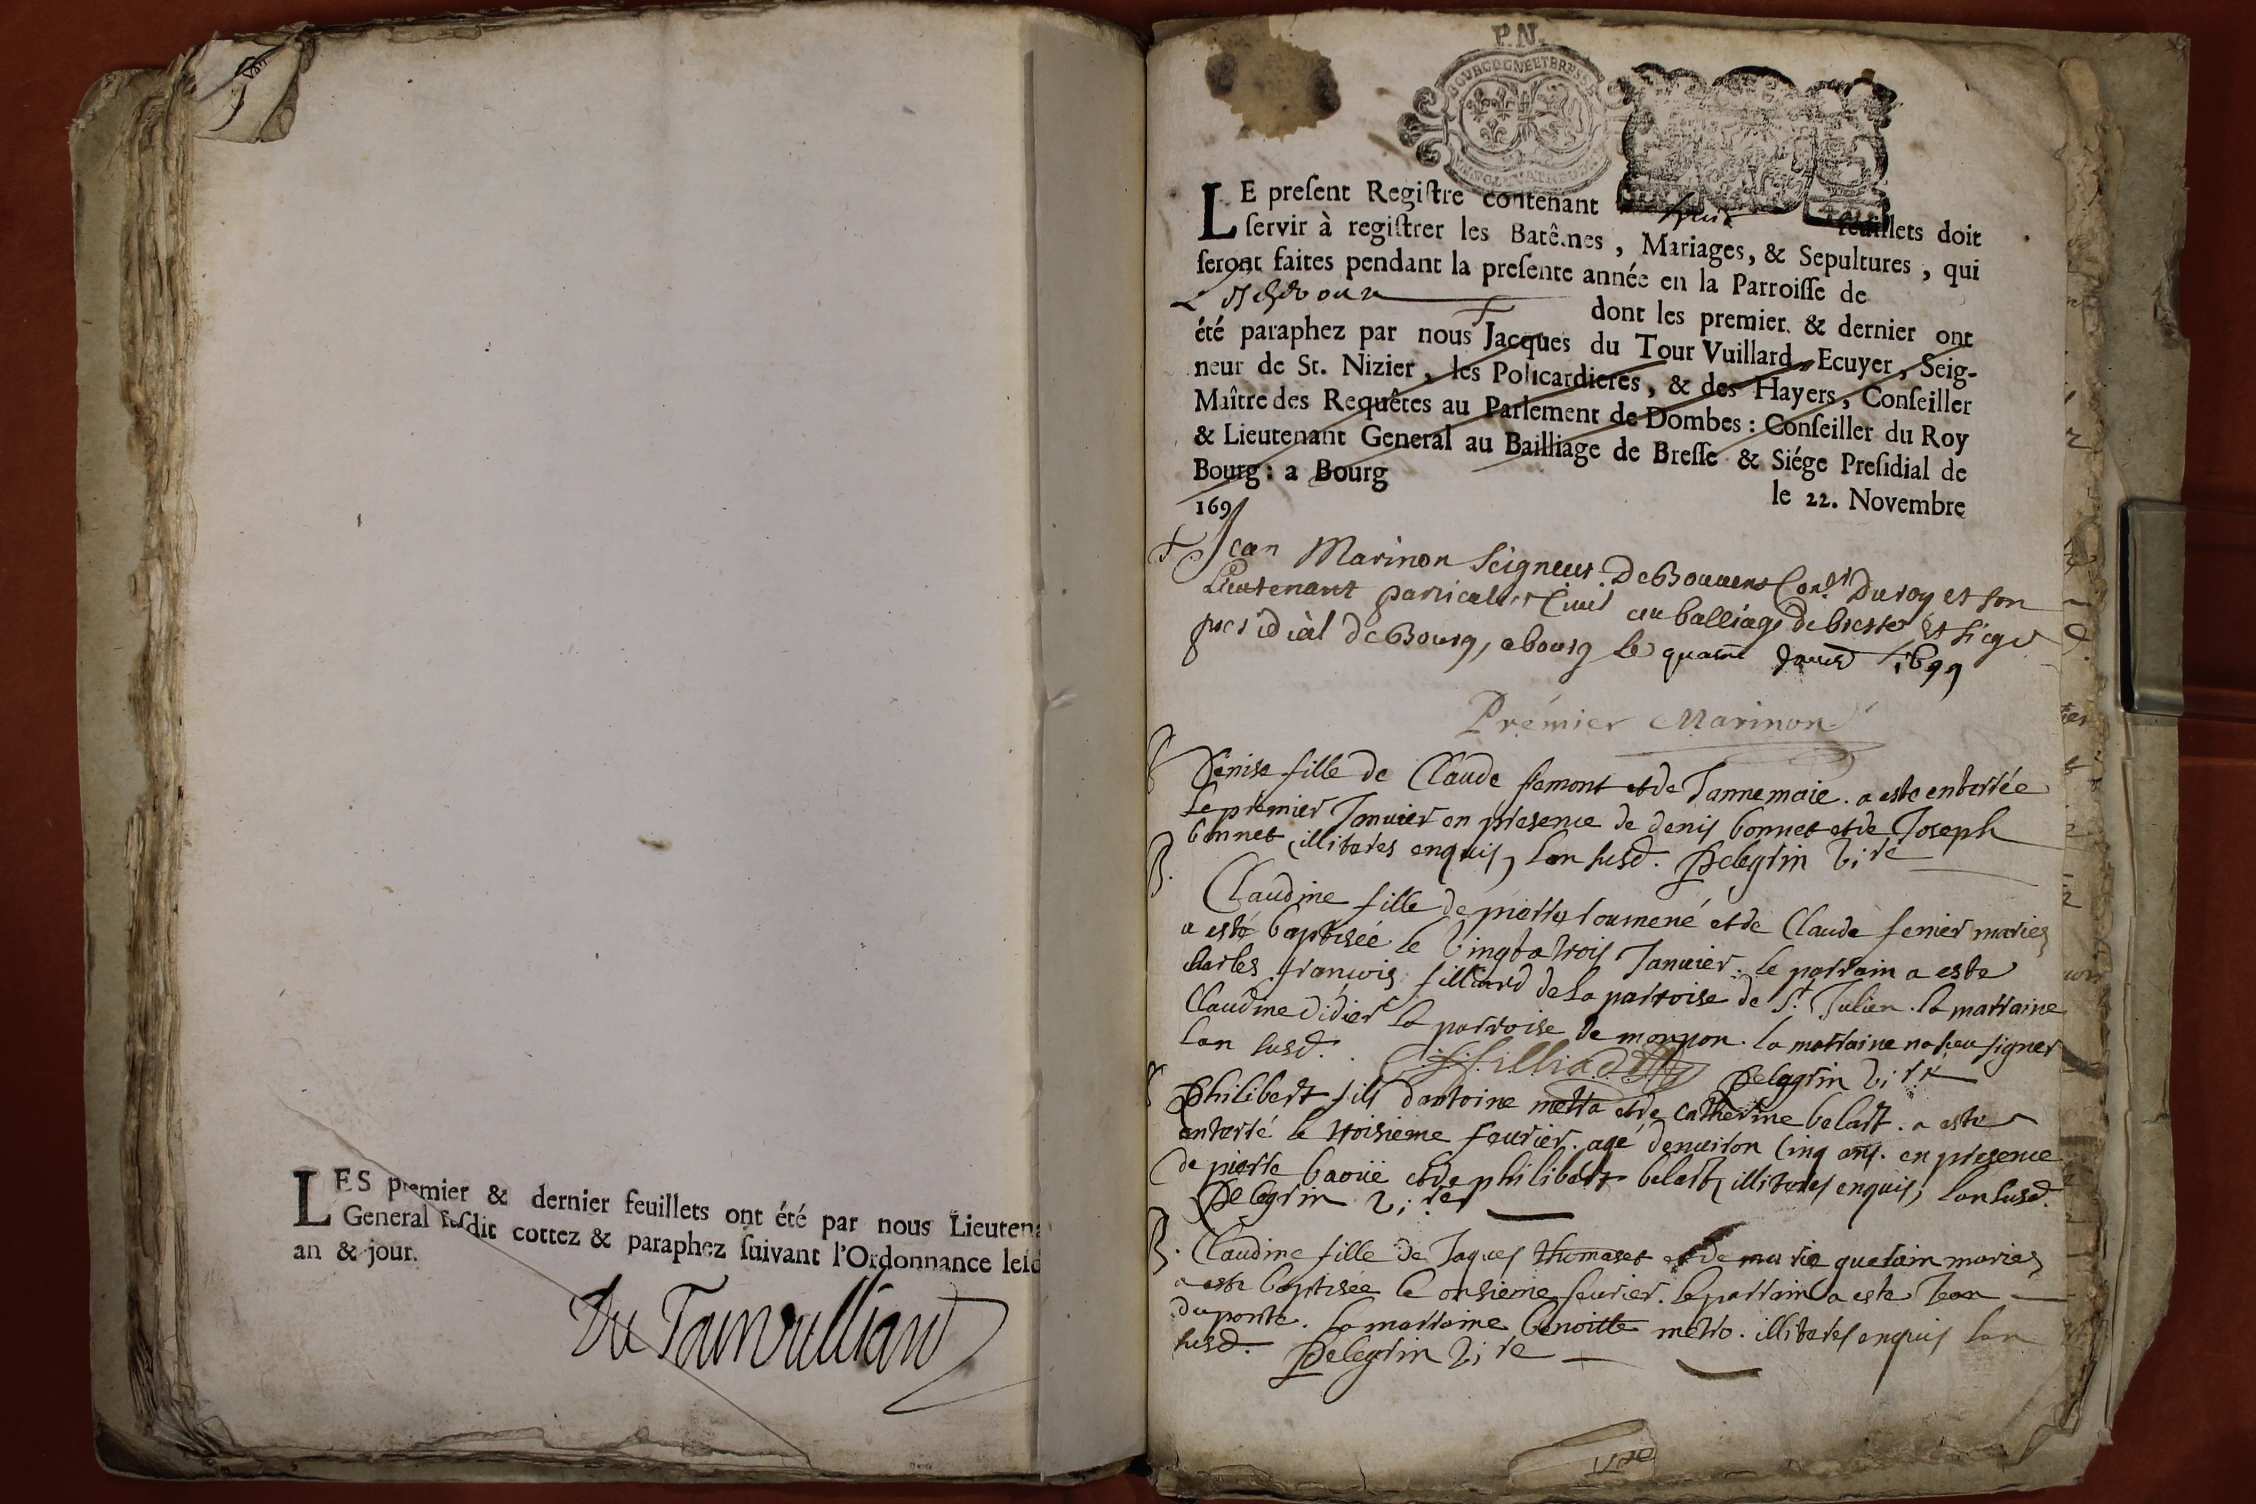 LES premier & dernier feuillets ont été par nous Lieutena
General susdit cottez & paraphez suivant l'Ordonnance lesd
an & jour.
Du Tour Vuilliard
P.N.
BOURGOGNE ET BRESSE
LE present Registre contenant feuillets doit
servir à registrer les Batêmes, Mariages, & Sepultures, qui
seront faites pendant la presente année en la Parroisse de
dont les premier. & dernier ont
été paraphez par nous Jacques du Tour Vuillard, Ecuyer, Seig-
neur de St. Nizier, les Policardieres, & des Hayers, Conseiller
Maître des Requêtes au Parlement de Dombes: Conseiller du Roy
& Lieutenant General au Bailliage de Bresse & Siége Presidial de
Bourg: a Bourg le 22. Novembre
169
Jean Marinon Seigneur De Bouuens Con.er Du roy et son
Lieutenant particulier Ciuil au balliage de bresse et siege
presidial De Bourg, a bourg le 1699
Prémier Marinon
Denise fille de Claude femont et de Janne maie. a este enterrée
le premier Januier en presence de denis bonnet et de Joseph
bonnet illiterés enquis, lan susd. Pelegrin vi.re
B. Claudine fille de pierre et de Claude fenier mariés
a esté baptisée le vingt a trois Januier. le parrain a este
charles françois filliard de la parroise de St. Julien. la marraine
Claudine didier la parroise de monpon. la marraine na sceu signer
lan susd. filliard Pelegrin vi.re
Philibert fils dantoine metra et de catherine belart. a este
enterré le troisieme feurier. agé denuiron cinq ans. en presence
de pierre et de philibert belart illiterés enquis, lan susd.
Pelegrin vi.re
B. Claudine fille de Jaques thomaset et de marie mariés
a este baptisee le onsieme feurier. le parrain a este Jean
duponte. la marraine benoitte metro. illiterés enquis lan
susd. Pelegrin vi.re